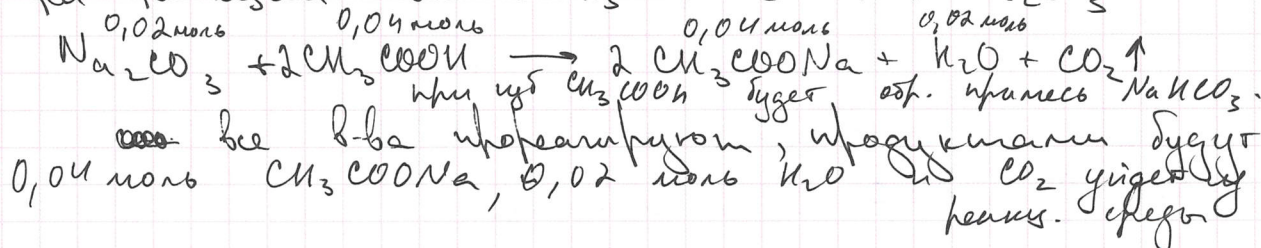 0,02 моль 0,04 моль 0,04 моль 0,02 моль
Na₂CO₃ + 2CH₃COOH → 2CH₃COONa + H₂O + CO₂↑
при CH₃COOH будет обр. примесь NaHCO₃.
все в-ва прореагируют, продуктами будут
0,04 моль CH₃COONa, 0,02 моль H₂O и CO₂ уйдет из
реакц. среды